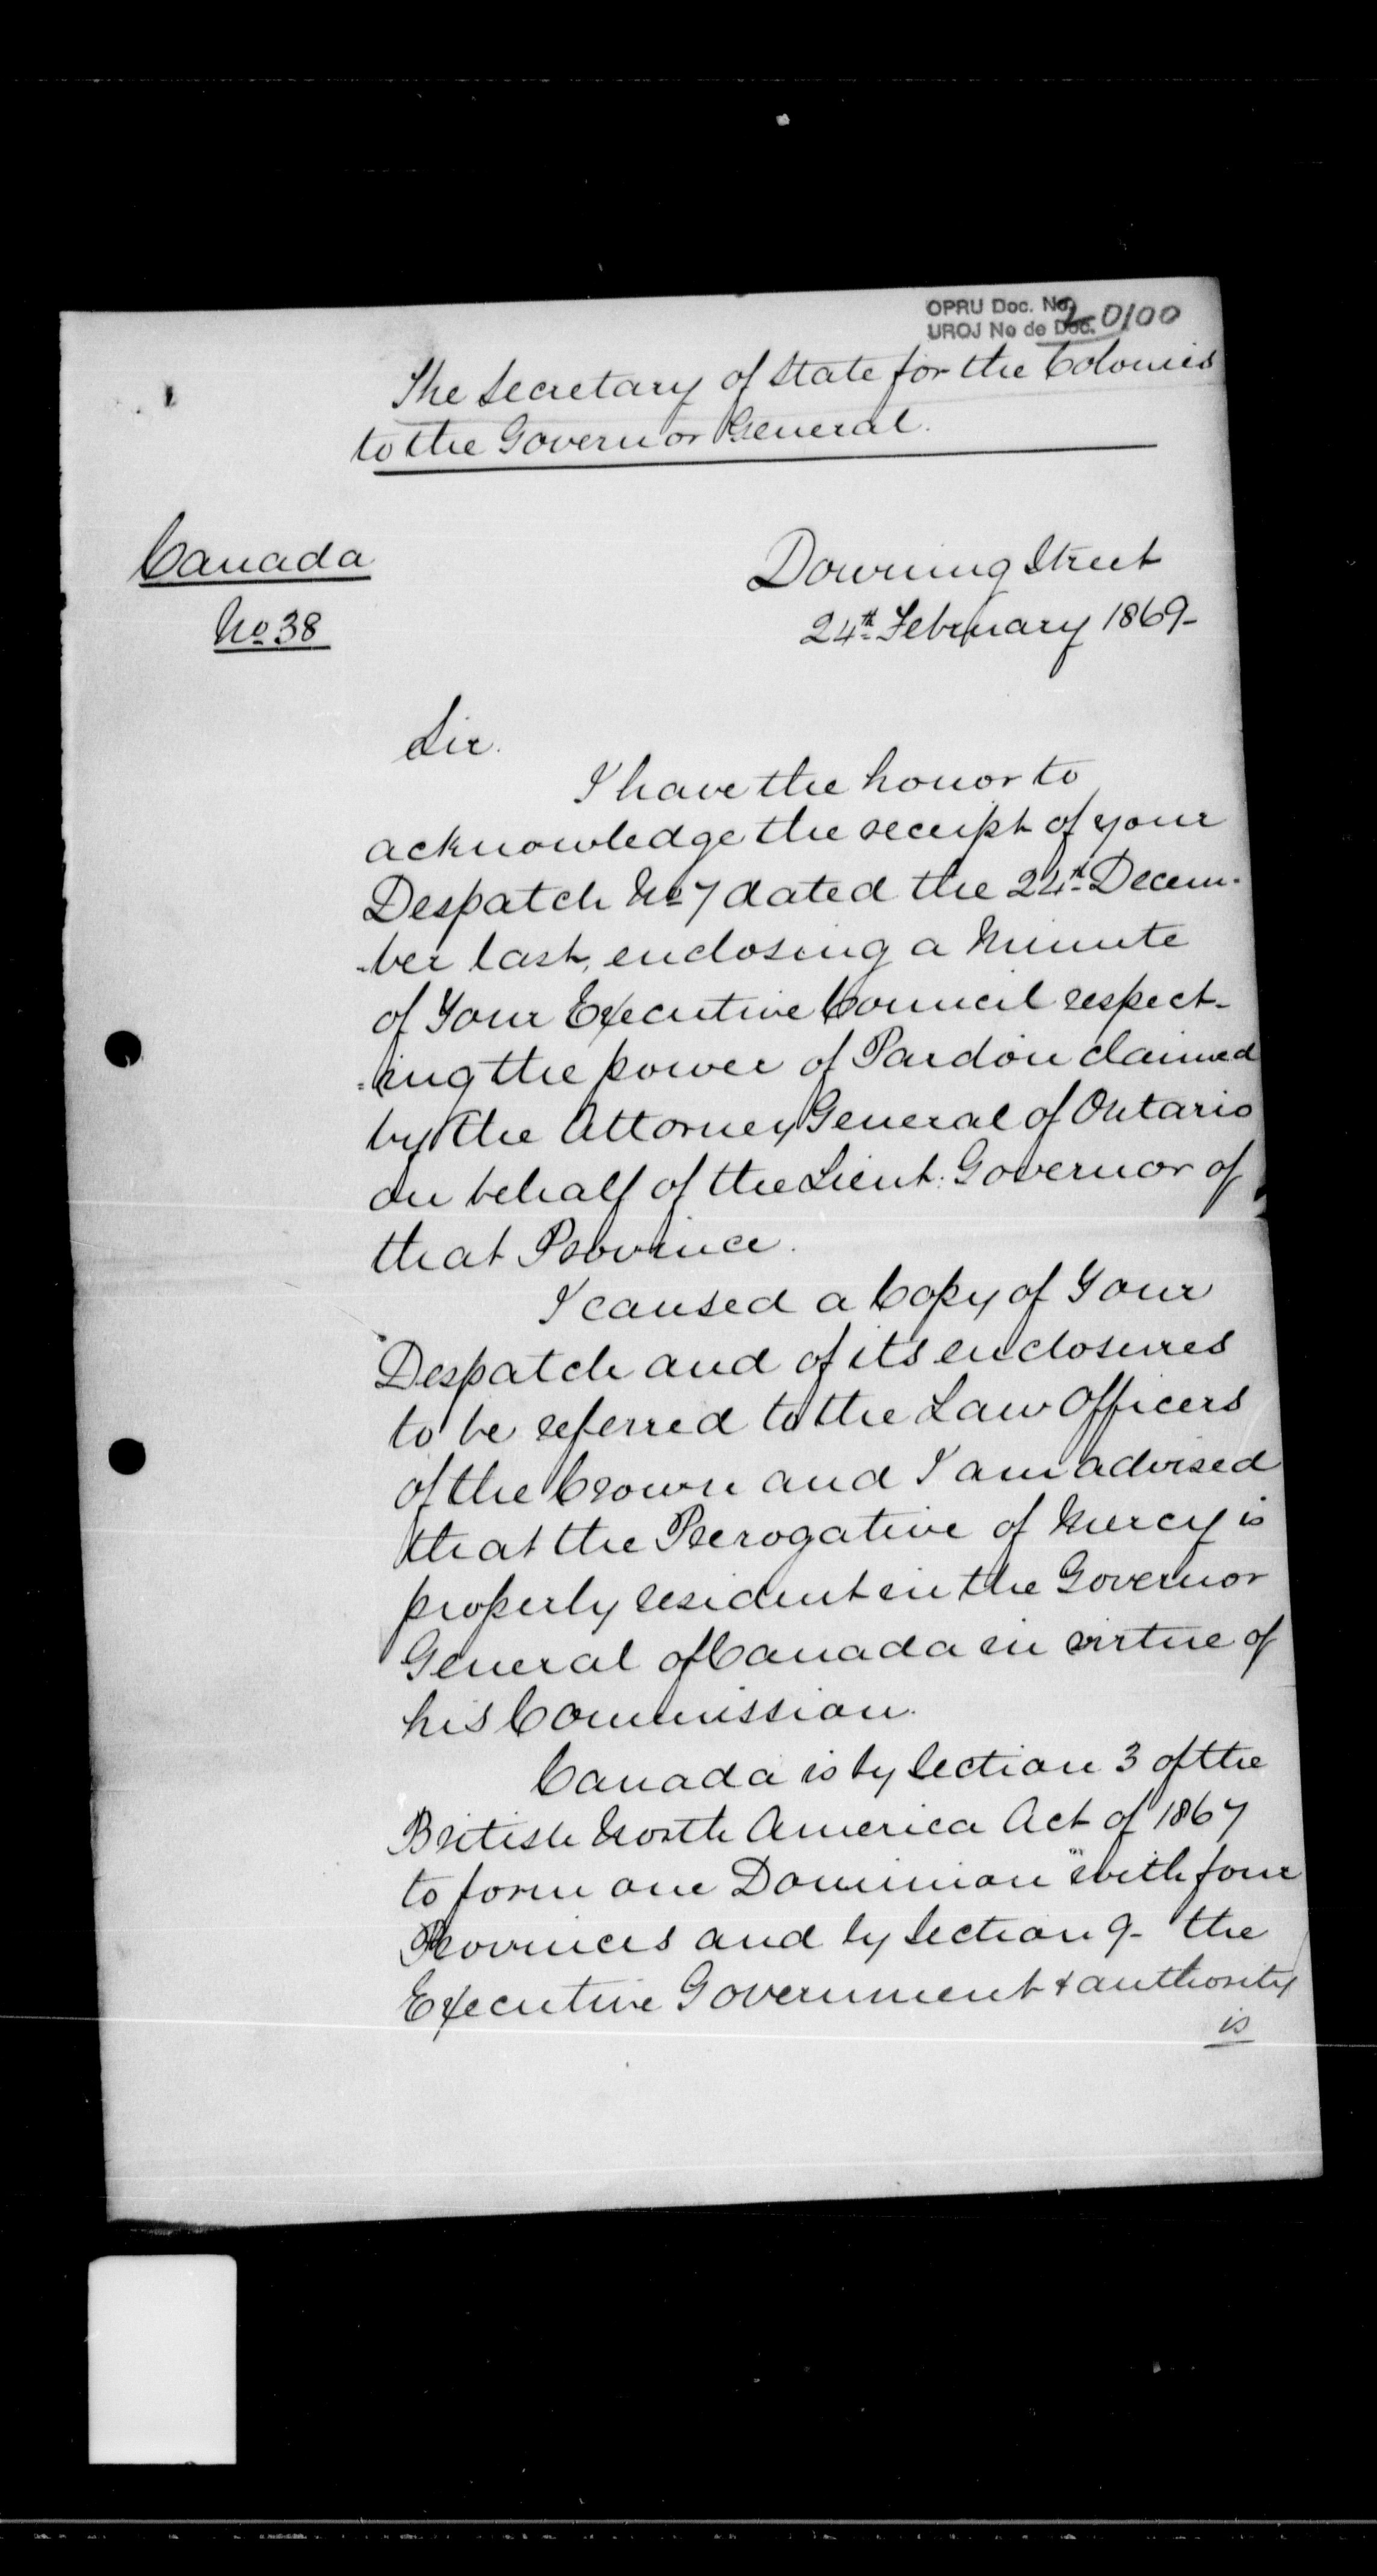 OPRU Doc. No. 20100
UROJ No de Doc.
The Secretary of State for the Colonies
to the Governor General.
Canada
No 38
Downing Street
24th February 1869-
Sir.
I have the honor to
acknowledge the receipt of your
Despatch No 7 dated the 24th Decem-
-ber last, enclosing a Minute
of Your Executive Council respect-
=ing the power of Pardon claimed
by the Attorney General of Ontario
on behalf of the Lieut: Governor of
that Province.
I caused a Copy of Your
Despatch and of its enclosures
to be referred to the Law Officers
of the Crown and I am advised
that the Prerogative of Mercy is
properly resident in the Governor
General of Canada in virtue of
his Commission.
Canada is by Section 3 of the
British North America Act of 1867
to form one Dominion" with four
Provinces and by Section 9- the
Executive Government & authority
is